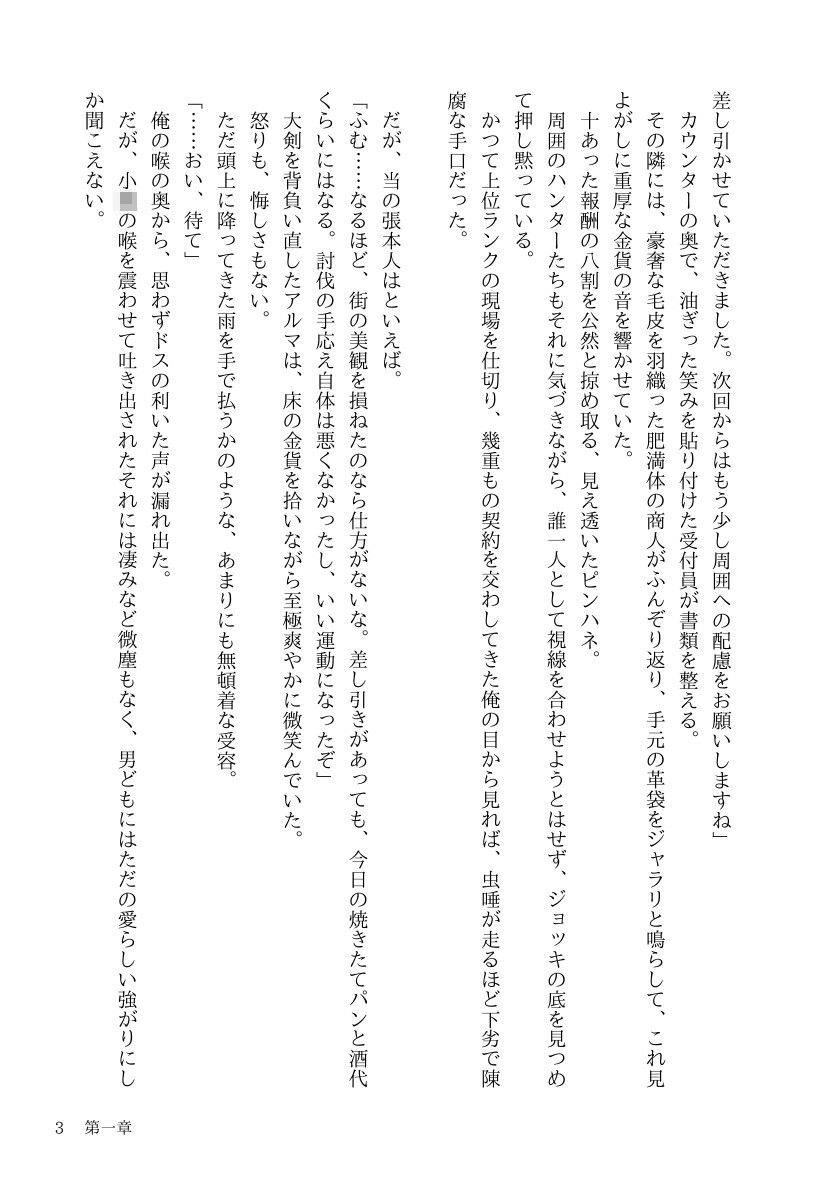 差し引かせていただきました。次回からはもう少し周囲への配慮をお願いしますね」
カウンターの奥で、油ぎった笑みを貼り付けた受付員が書類を整える。
その隣には、豪奢な毛皮を羽織った肥満体の商人がふんぞり返り、手元の革袋をジャラリと鳴らして、これ見
よがしに重厚な金貨の音を響かせていた。
十あった報酬の八割を公然と掠め取る、見え透いたピンハネ。
周囲のハンターたちもそれに気づきながら、誰一人として視線を合わせようとはせず、ジョッキの底を見つめ
て押し黙っている。
かつて上位ランクの現場を仕切り、幾重もの契約を交わしてきた俺の目から見れば、虫唾が走るほど下劣で陳
腐な手口だった。
だが、当の張本人はといえば。
「ふむ……なるほど、街の美観を損ねたのなら仕方がないな。差し引きがあっても、今日の焼きたてパンと酒代
くらいにはなる。討伐の手応え自体は悪くなかったし、いい運動になったぞ」
大剣を背負い直したアルマは、床の金貨を拾いながら至極爽やかに微笑んでいた。
怒りも、悔しさもない。
ただ頭上に降ってきた雨を手で払うかのような、あまりにも無頓着な受容。
「……おい、待て」
俺の喉の奥から、思わずドスの利いた声が漏れ出た。
だが、小の喉を震わせて吐き出されたそれには凄みなど微塵もなく、男どもにはただの愛らしい強がりにし
か聞こえない。
3 第一章